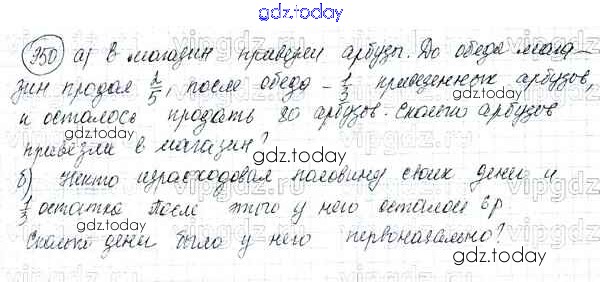 gdz.today
350) а) В магазин привезли арбузы. До обеда мага-
зин продал 2/5, после обеда - 1/3 привезенных арбузов,
и осталось продать 80 арбузов. Сколько арбузов
gdz.today
привезли в магазин?
gdz.today
б) Некто израсходовал половину своих денег и
1/3 остатка После этого у него осталось 6р
gdz.today
Сколько денег было у него первоначально?
gdz.today